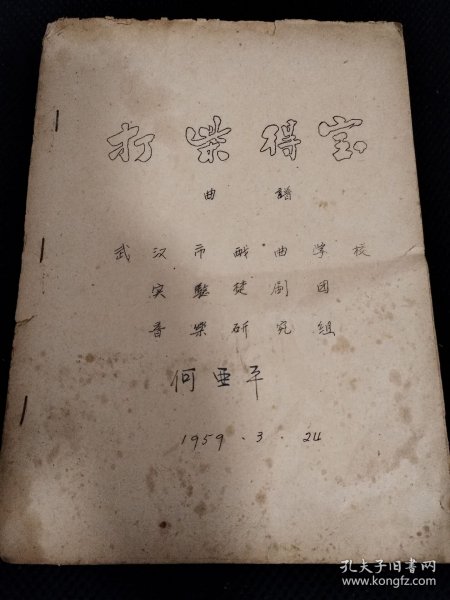 打柴得宝
曲譜
武汉市戏曲学校
实驗楚剧团
音柴研究組
何亜平
1959.3.24
孔夫子旧书网
www.kongfz.com